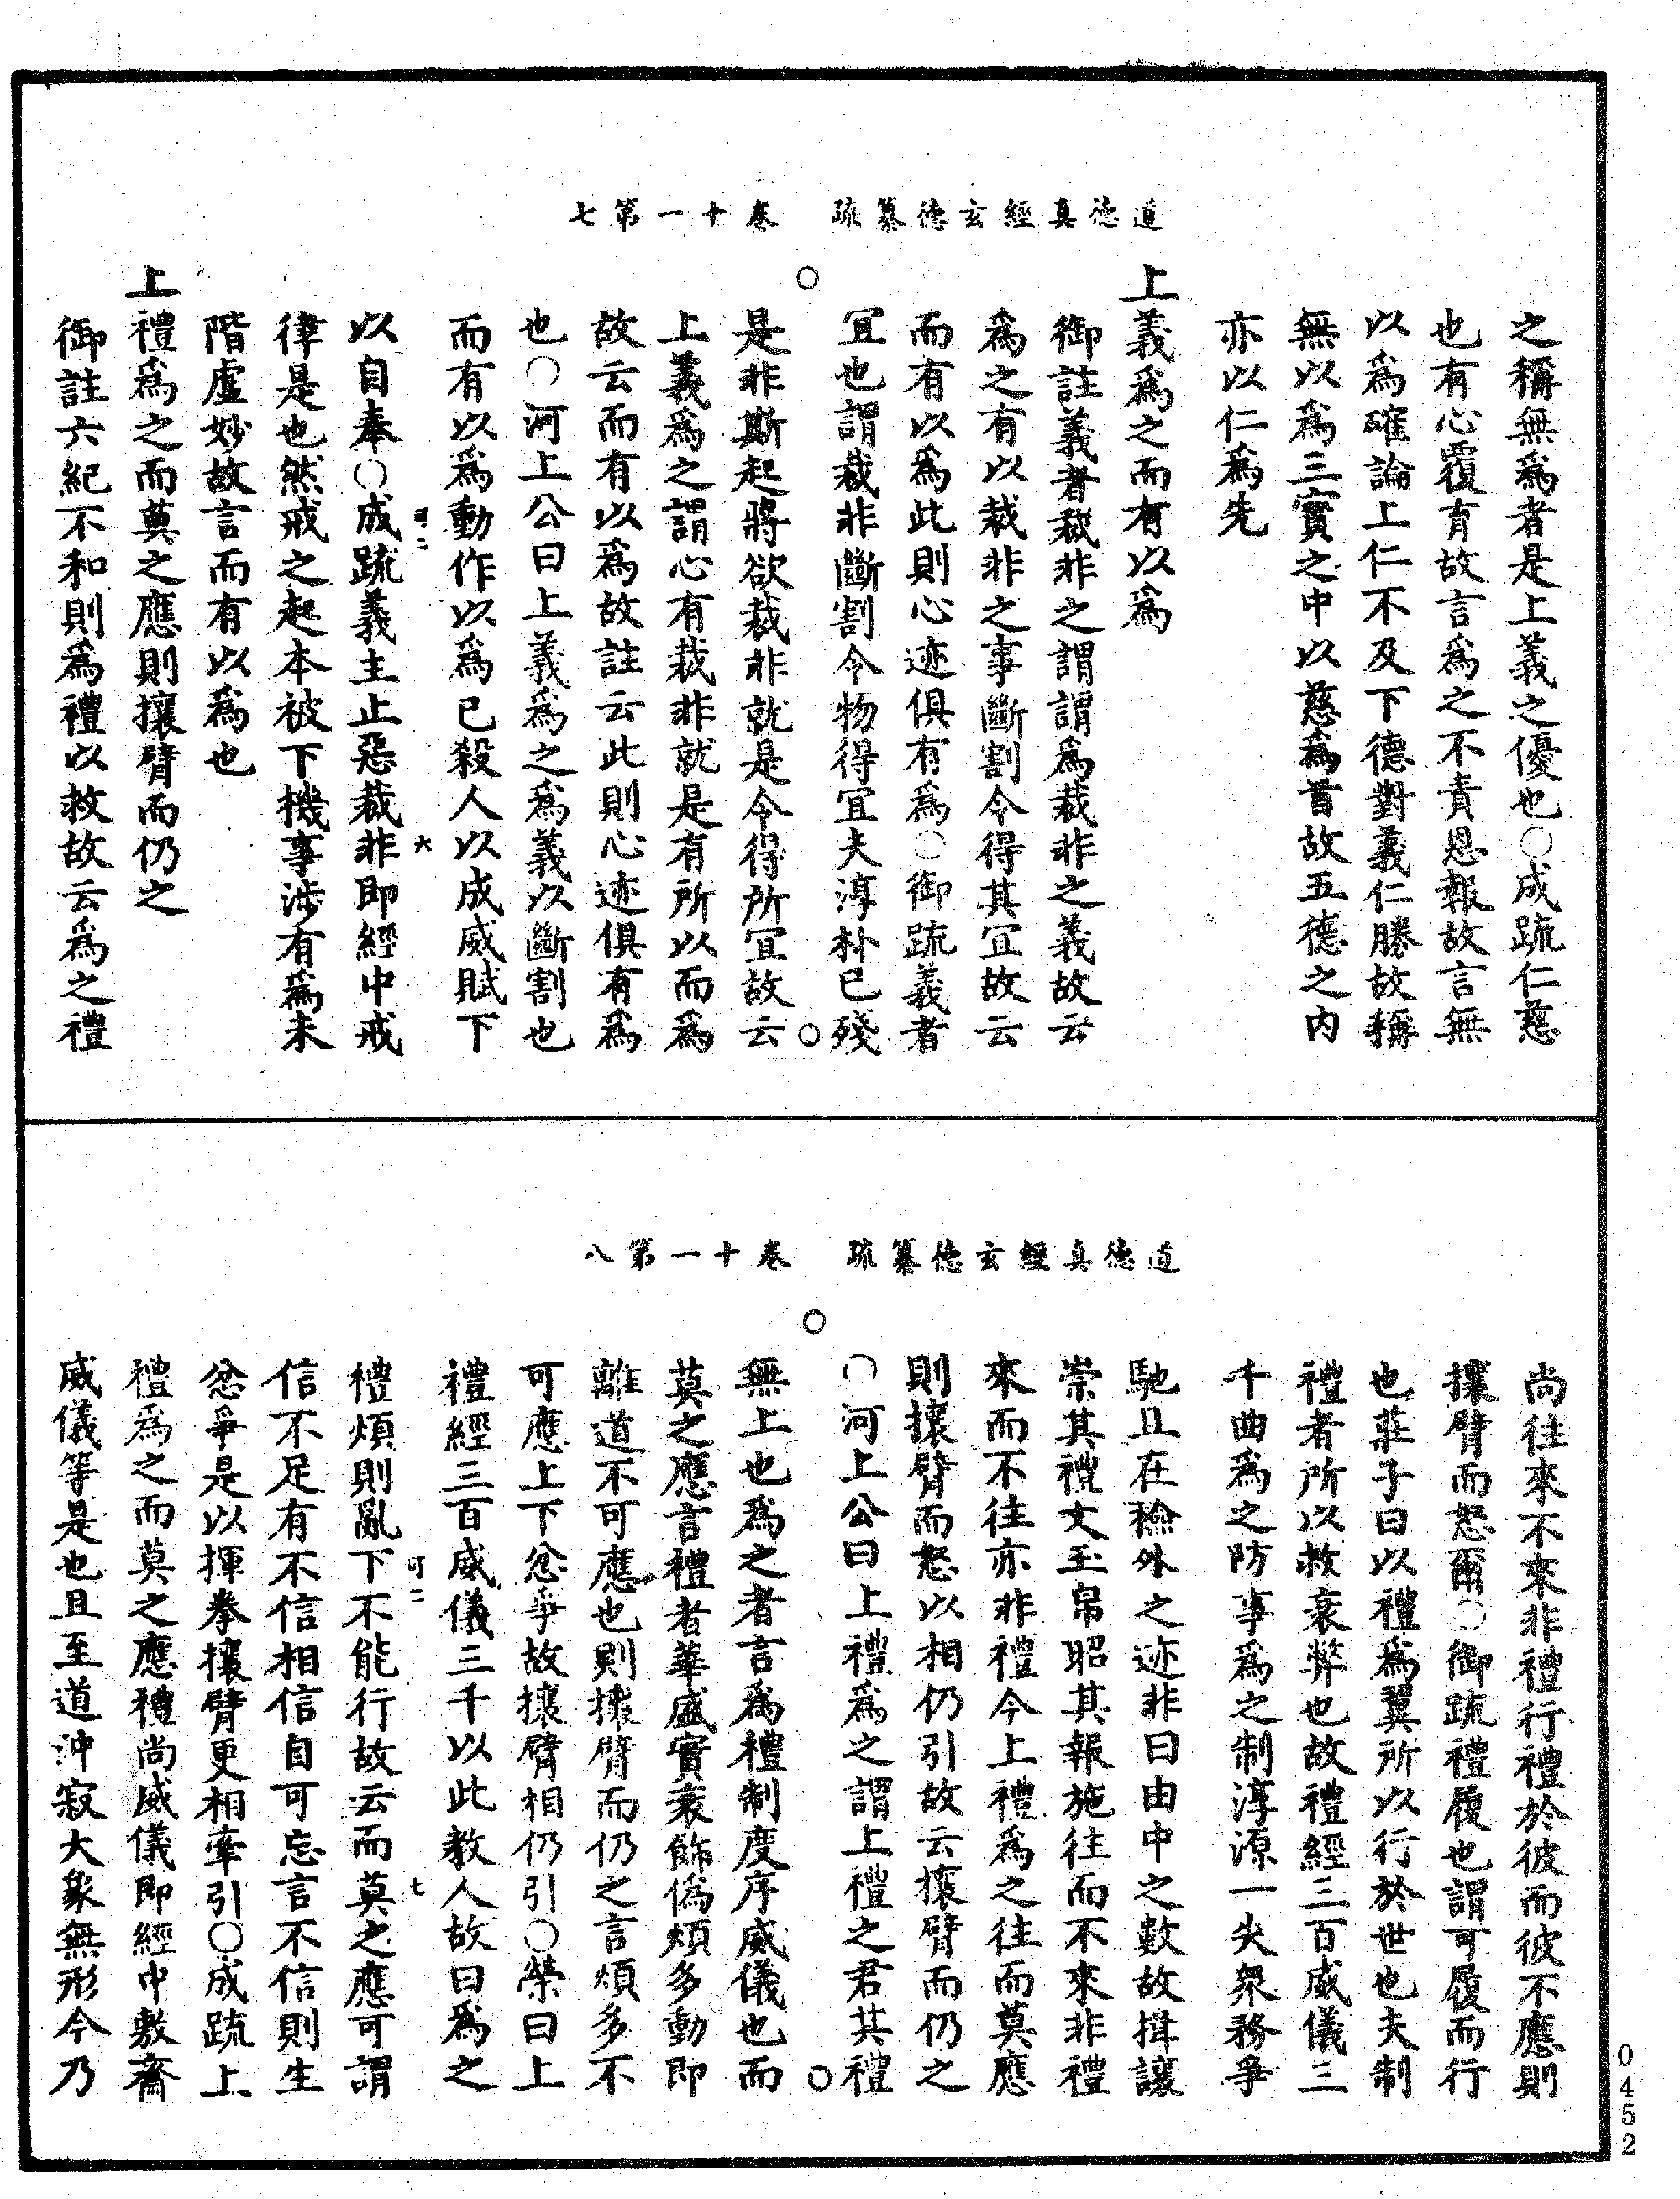 道德真經玄德纂疏　卷十一第七
之稱無爲者是上義之優也〇成疏仁慈
也有心覆育故言爲之不責恩報故言無
以爲確論上仁不及下德對義仁勝故稱
無以爲三寶之中以慈爲首故五德之內
亦以仁爲先
上義爲之而有以爲
御註義者裁非之謂謂爲裁非之義故云
爲之有以裁非之事斷割令得其宜故云
而有以爲此則心迹俱有爲〇御疏義者
宜也謂裁非斷割令物得宜夫淳朴已殘
是非斯起將欲裁非就是令得所宜故云
上義爲之謂心有裁非就是有所以而爲
故云而有以爲故註云此則心迹俱有爲
也〇河上公曰上義爲之爲義以斷割也
而有以爲動作以爲已殺人以成威賦下
以自奉〇成疏義主止惡裁非即經中戒
可二
六
律是也然戒之起本被下機事涉有爲未
階虛妙故言而有以爲也
上禮爲之而莫之應則攘臂而仍之
御註六紀不和則爲禮以救故云爲之禮
道德真經玄德纂疏　卷十一第八
尚往來不來非禮行禮於彼而彼不應則
攘臂而怒爾〇御疏禮履也謂可履而行
也莊子曰以禮爲翼所以行於世也夫制
禮者所以救衰弊也故禮經三百威儀三
千曲爲之防事爲之制淳源一失衆務爭
馳且在檢外之迹非曰由中之數故揖讓
崇其禮文玉帛昭其報施往而不來非禮
來而不往亦非禮今上禮爲之往而莫應
則攘臂而怒以相仍引故云攘臂而仍之
〇河上公曰上禮爲之謂上禮之君其禮
無上也爲之者言爲禮制度序威儀也而
莫之應言禮者華盛實衰飾僞煩多動即
離道不可應也則攘臂而仍之言煩多不
可應上下忿爭故攘臂相仍引〇榮曰上
禮經三百威儀三千以此教人故曰爲之
禮煩則亂下不能行故云而莫之應可謂
可二
七
信不足有不信相信自可忘言不信則生
忿爭是以揮拳攘臂更相牽引〇成疏上
禮爲之而莫之應禮尚威儀即經中敷齋
威儀等是也且至道沖寂大象無形今乃
0452